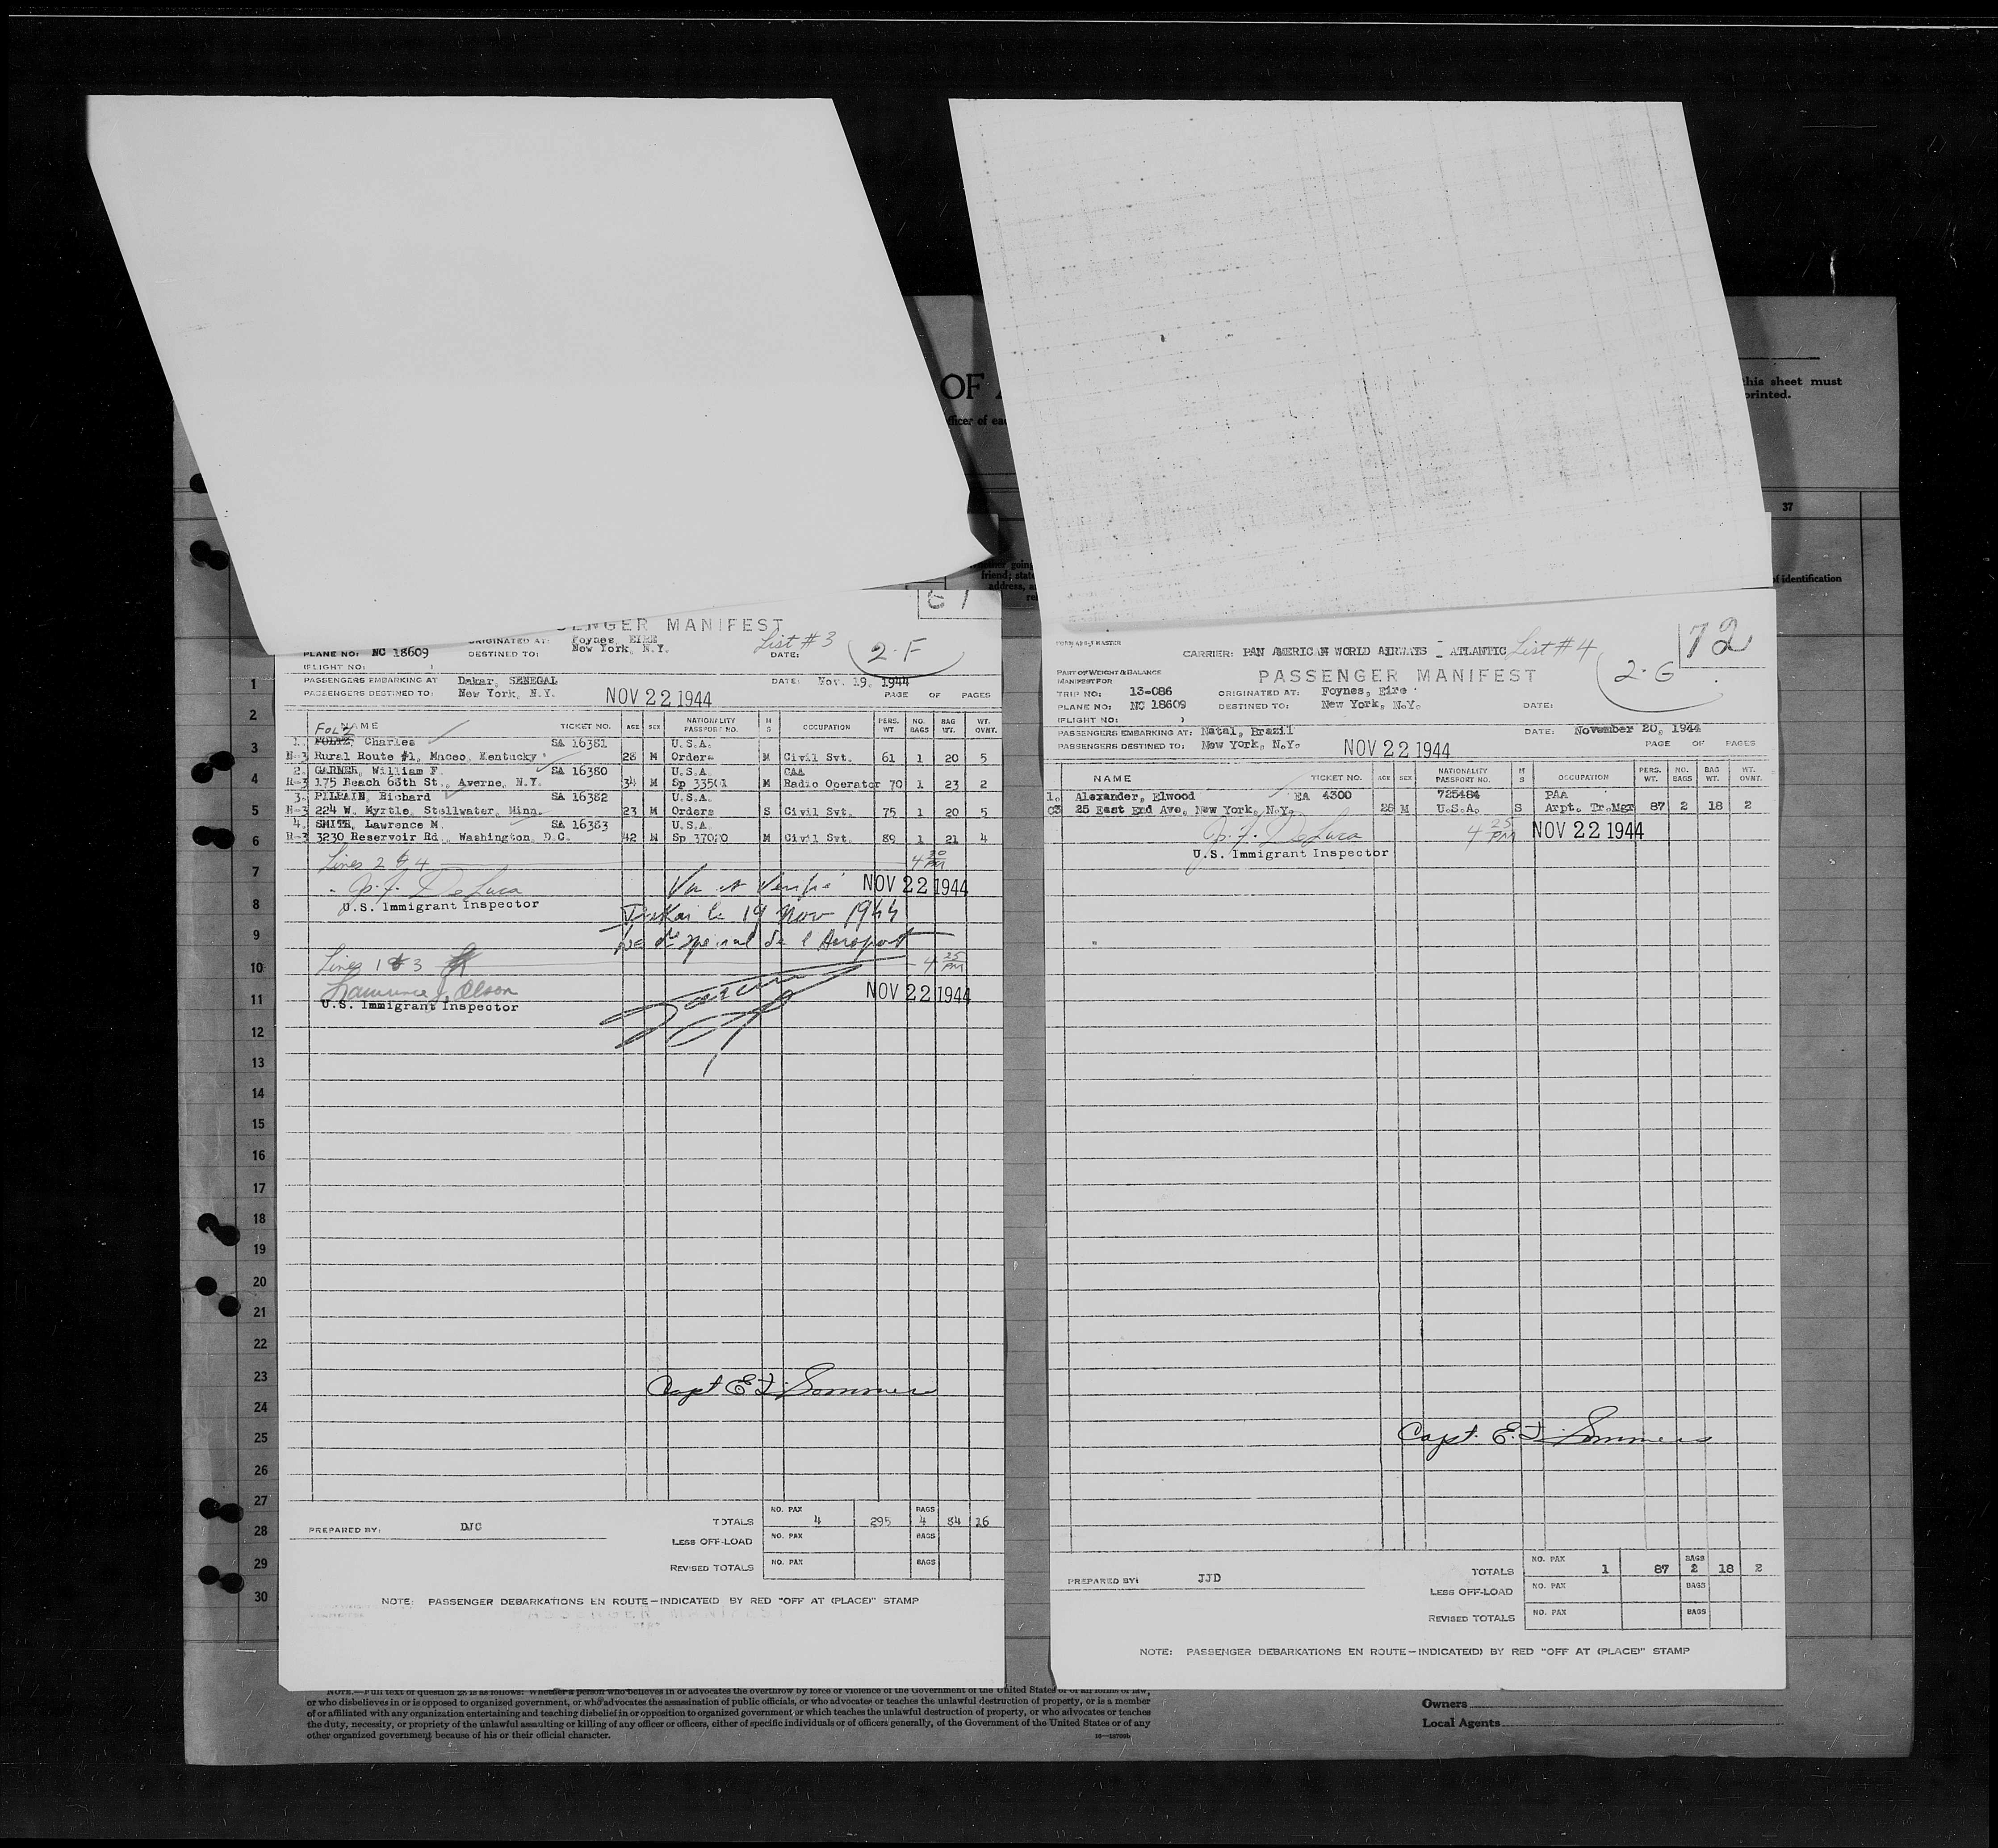 OF
this sheet must
printed.
37
of identification
address,
SENGER MANIFEST
List # 3
ORIGINATED AT: Foynes, EIRE
PLANE NO: NC 18609 DESTINED TO: New York, N.Y. DATE: 2-F
(FLIGHT NO: )
PASSENGERS EMBARKING AT Dakar, SENEGAL DATE: Nov. 19, 1944
PASSENGERS DESTINED TO: New York, N.Y. NOV 22 1944 PAGE OF PAGES
NAME TICKET NO. AGE SEX NATIONALITY PASSPORT NO. M S OCCUPATION PERS. WT NO. BAGS BAG WT. WT. OVNT.
FOLZ
1. FOLTZ, Charles SA 16381 U.S.A.
R-3 Rural Route #1, Maceo, Kentucky 28 M Orders M Civil Svt. 61 1 20 5
2. GARNER, William F. SA 16380 U.S.A. CAA
R-3 175 Beach 68th St., Averne, N.Y. 34 M Sp 33501 M Radio Operator 70 1 23 2
3. PILPAIN, Richard SA 16382 U.S.A.
R-3 224 W. Myrtle, Stellwater, Minn. 23 M Orders S Civil Svt. 75 1 20 5
4. SMITH, Lawrence M. SA 16383 U.S.A.
R-3 3230 Reservoir Rd., Washington, D.C. 42 M Sp 37020 M Civil Svt. 89 1 21 4
Lines 2 & 4 4 30 PM
J. F. DeLuca Vu et Verifié NOV 22 1944
U.S. Immigrant Inspector
Dakar le 19 Nov 1944
special de l'Aeroport
Lines 1 & 3 4 25 PM
Lawrence J. Olson NOV 22 1944
U.S. Immigrant Inspector
Capt E. J. Sommers
TOTALS NO. PAX 4 295 BAGS 4 84 16
PREPARED BY: DJC
LESS OFF-LOAD NO. PAX BAGS
REVISED TOTALS NO. PAX BAGS
NOTE: PASSENGER DEBARKATIONS EN ROUTE—INDICATE(D) BY RED "OFF AT (PLACE)" STAMP
1
2
3
4
5
6
7
8
9
10
11
12
13
14
15
16
17
18
19
20
21
22
23
24
25
26
27
28
29
30
72
CARRIER: PAN AMERICAN WORLD AIRWAYS - ATLANTIC List # 4
PART OF WEIGHT & BALANCE MANIFEST FOR PASSENGER MANIFEST 2-G
TRIP NO: 13-086 ORIGINATED AT: Foynes, Eire
PLANE NO: NC 18609 DESTINED TO: New York, N.Y. DATE:
(FLIGHT NO: )
PASSENGERS EMBARKING AT: Natal, Brazil DATE: November 20, 1944
PASSENGERS DESTINED TO: New York, N.Y. NOV 22 1944 PAGE OF PAGES
NAME TICKET NO. AGE SEX NATIONALITY PASSPORT NO. M S OCCUPATION PERS. WT. NO. BAGS BAG WT. WT. OVNT.
1. Alexander, Elwood EA 4300 725484 PAA
03 25 East End Ave, New York, N.Y. 28 M U.S.A. S Arpt. Tr.Mgr 87 2 18 2
J. F. DeLuca 4 25 PM NOV 22 1944
U.S. Immigrant Inspector
Capt. E. J. Sommers
TOTALS NO. PAX 1 87 BAGS 2 18 2
PREPARED BY: JJD
LESS OFF-LOAD NO. PAX BAGS
REVISED TOTALS NO. PAX BAGS
NOTE: PASSENGER DEBARKATIONS EN ROUTE—INDICATE(D) BY RED "OFF AT (PLACE)" STAMP
NOTE.—Full text of question 28 is as follows: Whether a person who believes in or advocates the overthrow by force or violence of the Government of the United States or of all forms of law,
or who disbelieves in or is opposed to organized government, or who advocates the assassination of public officials, or who advocates or teaches the unlawful destruction of property, or is a member
of or affiliated with any organization entertaining and teaching disbelief in or opposition to organized government or which teaches the unlawful destruction of property, or who advocates or teaches
the duty, necessity, or propriety of the unlawful assaulting or killing of any officer or officers, either of specific individuals or of officers generally, of the Government of the United States or of any
other organized government because of his or their official character.
Owners
Local Agents